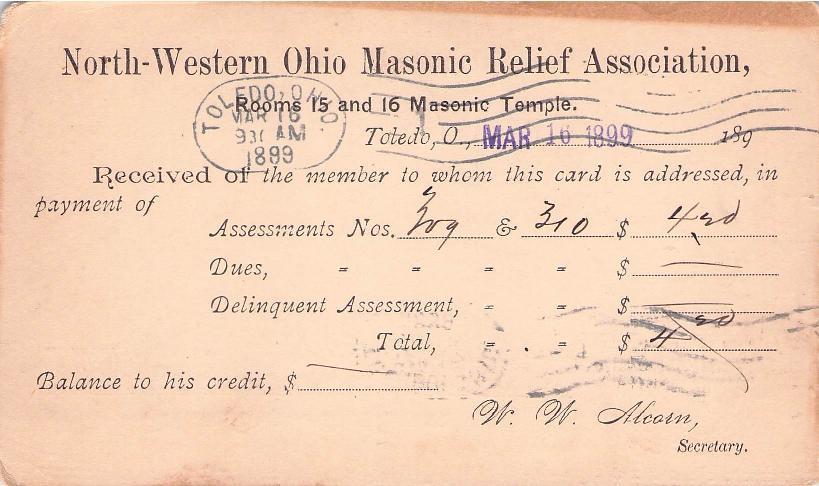 North-Western Ohio Masonic Relief Association,
Rooms 15 and 16 Masonic Temple.
TOLEDO, OHIO.
MAR 16
930 AM
1899
Toledo, O., MAR 16 1899 189
Received of the member to whom this card is addressed, in
payment of
Assessments Nos. 309 & 310 $ 4 20
Dues, = = = = $
Delinquent Assessment, = = $
Total, = . = $ 4 20
Balance to his credit, $
W. W. Alcorn,
Secretary.